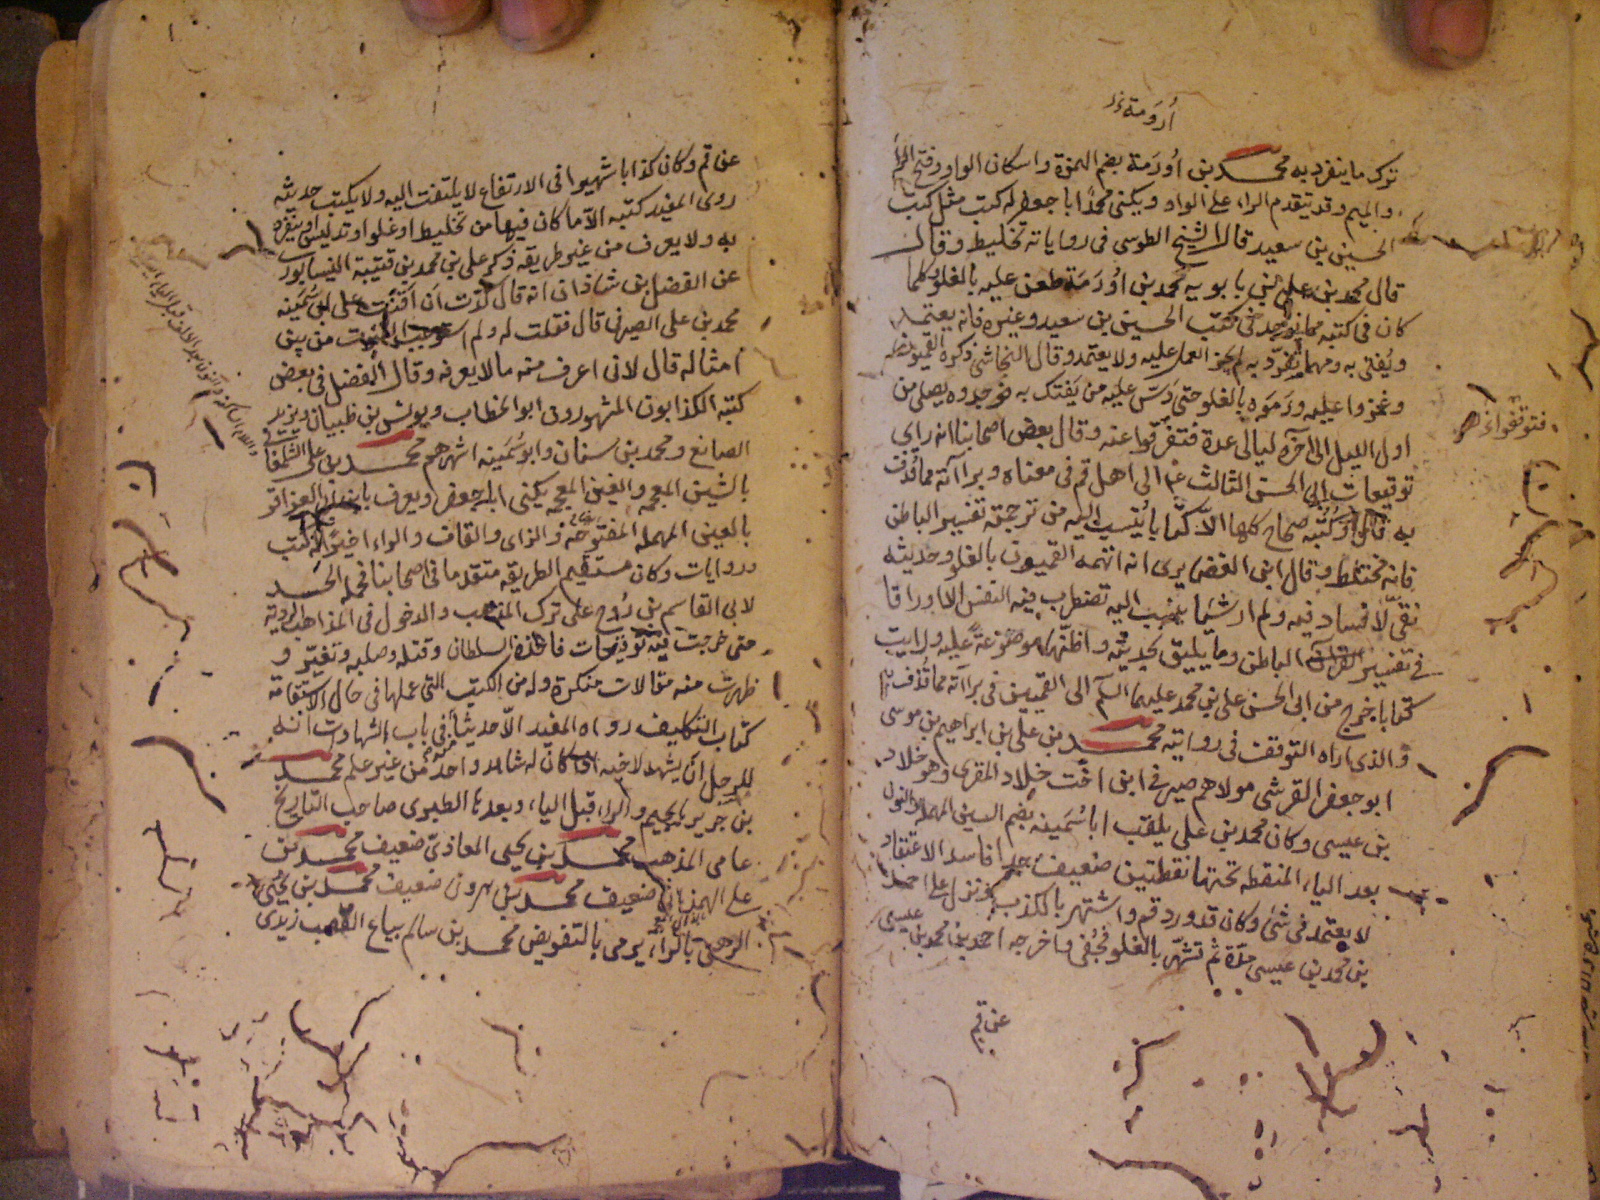 أُروَمة
ترك ما ينفرد به محمد بن اُورَمة بضم الهمزة واسكان الواو وفتح الراء
والميم وقد تتقدم الراء على الواو ويكنى محمد ابا جعفر له كتب مثل كتب
الحسين بن سعيد قال الشيخ الطوسى فى رواياته تخليط وقال
قال محمد بن على بن بابويه محمد بن اُورَمَة طعن عليه بالغلو فكلما
كان فى كتبه مما يوجد فى كتب الحسين بن سعيد وغيره فانه يعتمد
ويُفتى به ومهما تفرّد به لم يجز العمل عليه ولا يعتمد وقال النجاشى ذكره القميون
وغمزوا عليه ورَمَوه بالغلو حتى دَسّ عليه من يَفتك به فوجدوه يصلى من
اول الليل الى آخره ليالى عدة فتفرقوا عنه وقال بعض اصحابنا انه راى
فتوقفوا
توقيعات ابى الحسن الثالث ع الى اهل قم فى معناه وبراآته مما قُذف
به وكُتُبه صحاح كلها الا كتابا يُنسب اليه من ترجمة تفسير الباطن
فانه مختلط وقال ابن الغضايرى انه اتهمه القميون بالغلو وحديثه
نقىّ لا فساد فيه ولم ار شيئا ينسب اليه تضطرب فيه النفس الا اوراقا
فى تفسير القرآن الباطن وما يليق بحديثه واظنها موضوعةً عليه ورايت
كتابا خرج من ابى الحسن على بن محمد عليهما السلم الى القميين فى براآته مما قُذف به
والذى اراه التوقف فى روايته محمد بن على بن ابراهيم بن موسى
ابو جعفر القرشى مولاهم صيرفى ابن اخت خلاد المقرى وهو خلاد
بن عيسى وكان محمد بن على يلقب ابا سُمَينه بضم السين المهملة والنون
بعد الياء المنقطه تحتها نقطتين ضعيف جدا فاسد الاعتقاد
لا يعتمد فى شئ وكان قد ورد قم واشتهر بالكذب بالكوفة نزل على احمد
بن محمد بن عيسى مدّة ثم تشهّر بالغلو فجُفى واخرجه احمد بن محمد بن عيسى
عن قم
عن قم وكان كذابا شهيرا فى الارتفاع لا يلتفت اليه ولا يكتب حديثه
روى المفيد كتبه الا ما كان فيها من تخليط او غلو او تدليس او ينفرد
به ولا يعرف من غير طريقه ذكر على بن محمد بن قتيبة النيسابورى
عن الفضل بن شاذان انه قال كدت ان اقنت على ابى سُمَينه
محمد بن على الصيرفى قال فقلت له ولم استوجب القنوت من بين
امثاله قال لانى اعرف منه ما لا يعرفه وقال الفضل فى بعض
كتبه الكذابون المشهورون ابو الخطاب ويونس بن ظبيان ويزيد
الصائغ ومحمد بن سنان وابو سُمَينه اشهرهم محمد بن على الشلمغانى
بالشين المعجمه والغين المعجمه يكنى ابا جعفر ويعرف بابن ابى العزاقر
بالعين المهمله المفتوحه والزاى والقاف والراء اخيرًا له كتب
وروايات وكان مستقيم الطريقه متقدما فى اصحابنا فحمله الحسد
لابى القاسم بن رُوح على ترك المذهب والدخول فى المذاهب الردية
حتى خرجت فيه توقيعات فاخذه السلطان وقتله وصلبه وتغيّر و
ظهرت منه مقالات منكرة وله من الكتب التى عملها فى حال الاستقامة
كتاب التكليف رواه المفيد الا حديثًا فى باب الشهادات انه
للرجل ان يشهد لاخيه اذا كان له شاهد واحد من غير علم محمد
بن جرير بالجيم والراء قبل الياء وبعدها الطبرى صاحب التاريخ
عامى المذهب محمد بن يحيى المعاذىّ ضعيف محمد بن
على الهمذانى ضعيف محمد بن هرون ضعيف محمد بن يحيى
الرهنى بالراء يرمى بالتفويض محمد بن سالم بياع القصب زيدى